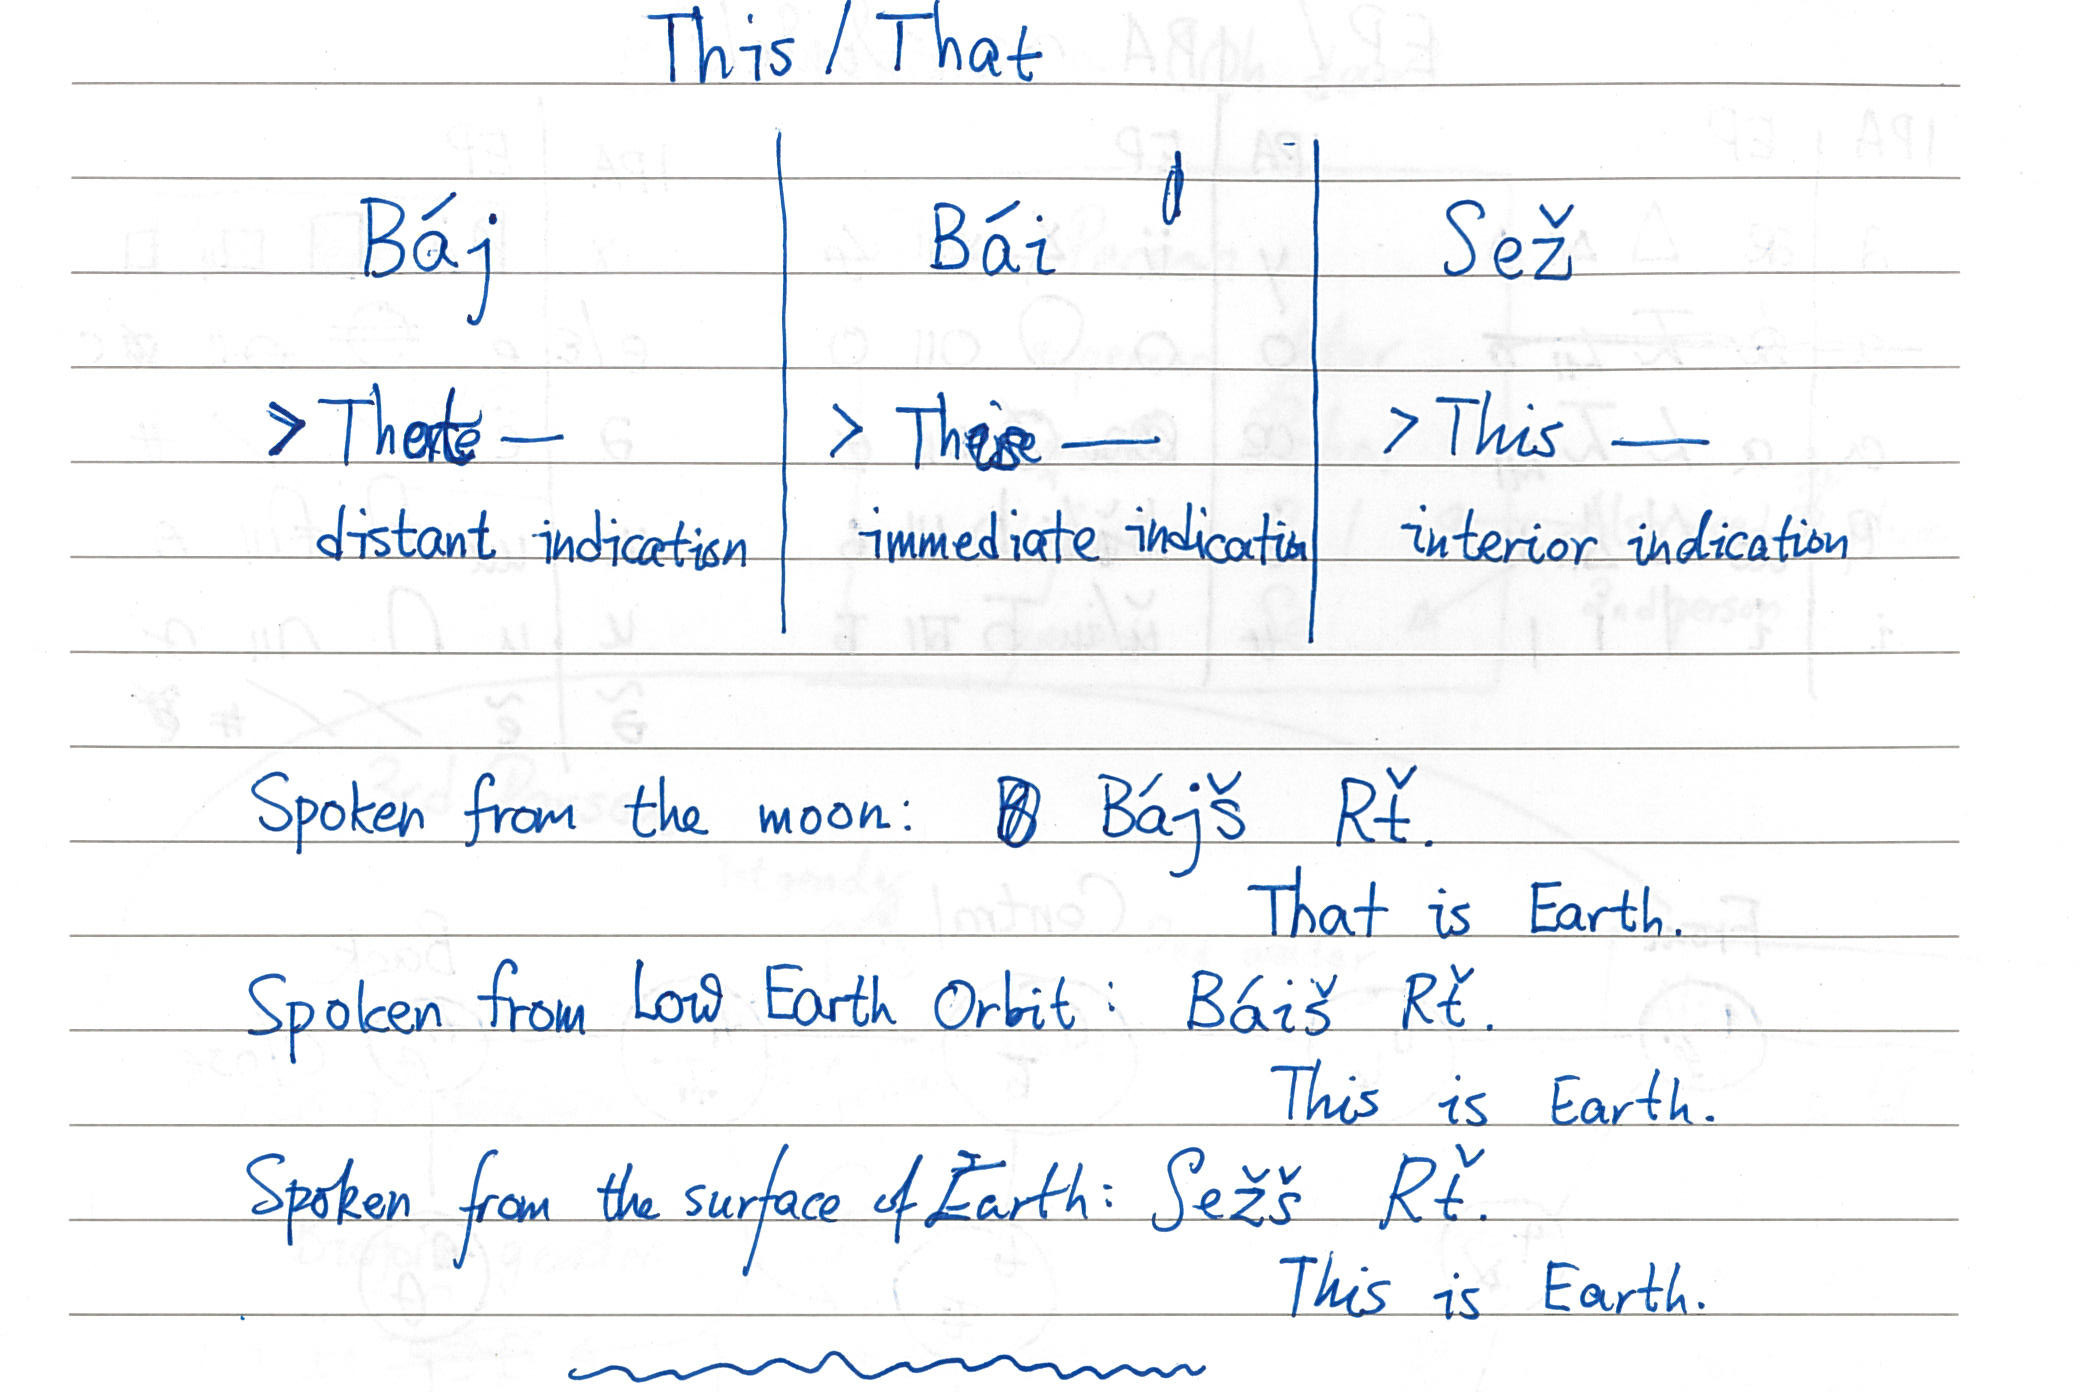 This / That
Báj Bái Sež
> > > This —
distant indication immediate indication interior indication
Spoken from the moon: Bájš Rť.
That is Earth.
Spoken from Low Earth Orbit: Báiš Rť.
This is Earth.
Spoken from the surface of Earth: Sežš Rť.
This is Earth.